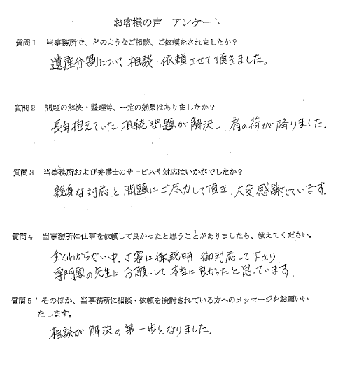 お客様の声 アンケート
質問1 当事務所で、どのようなご相談、ご依頼をされましたか？
遺産分割について相談・依頼させて頂きました。
質問2 問題の解決・整理等、一定の効果はありましたか？
長年抱えていた相続問題が解決。肩の荷が降りました。
質問3 当事務所および弁護士のサービスや対応はいかがでしたか？
親身な対応と問題にご尽力して頂き、大変感謝しています。
質問4 当事務所に仕事を依頼して良かったと思うことがありましたら、教えてください。
すくわからない中、丁寧に御説明 御対応して下さり
専門家の先生にお願いして本当に良かったと思っています。
質問5 そのほか、当事務所に相談・依頼を検討されている方へのメッセージをお願いい
たします。
相談が解決の第一歩となりました。